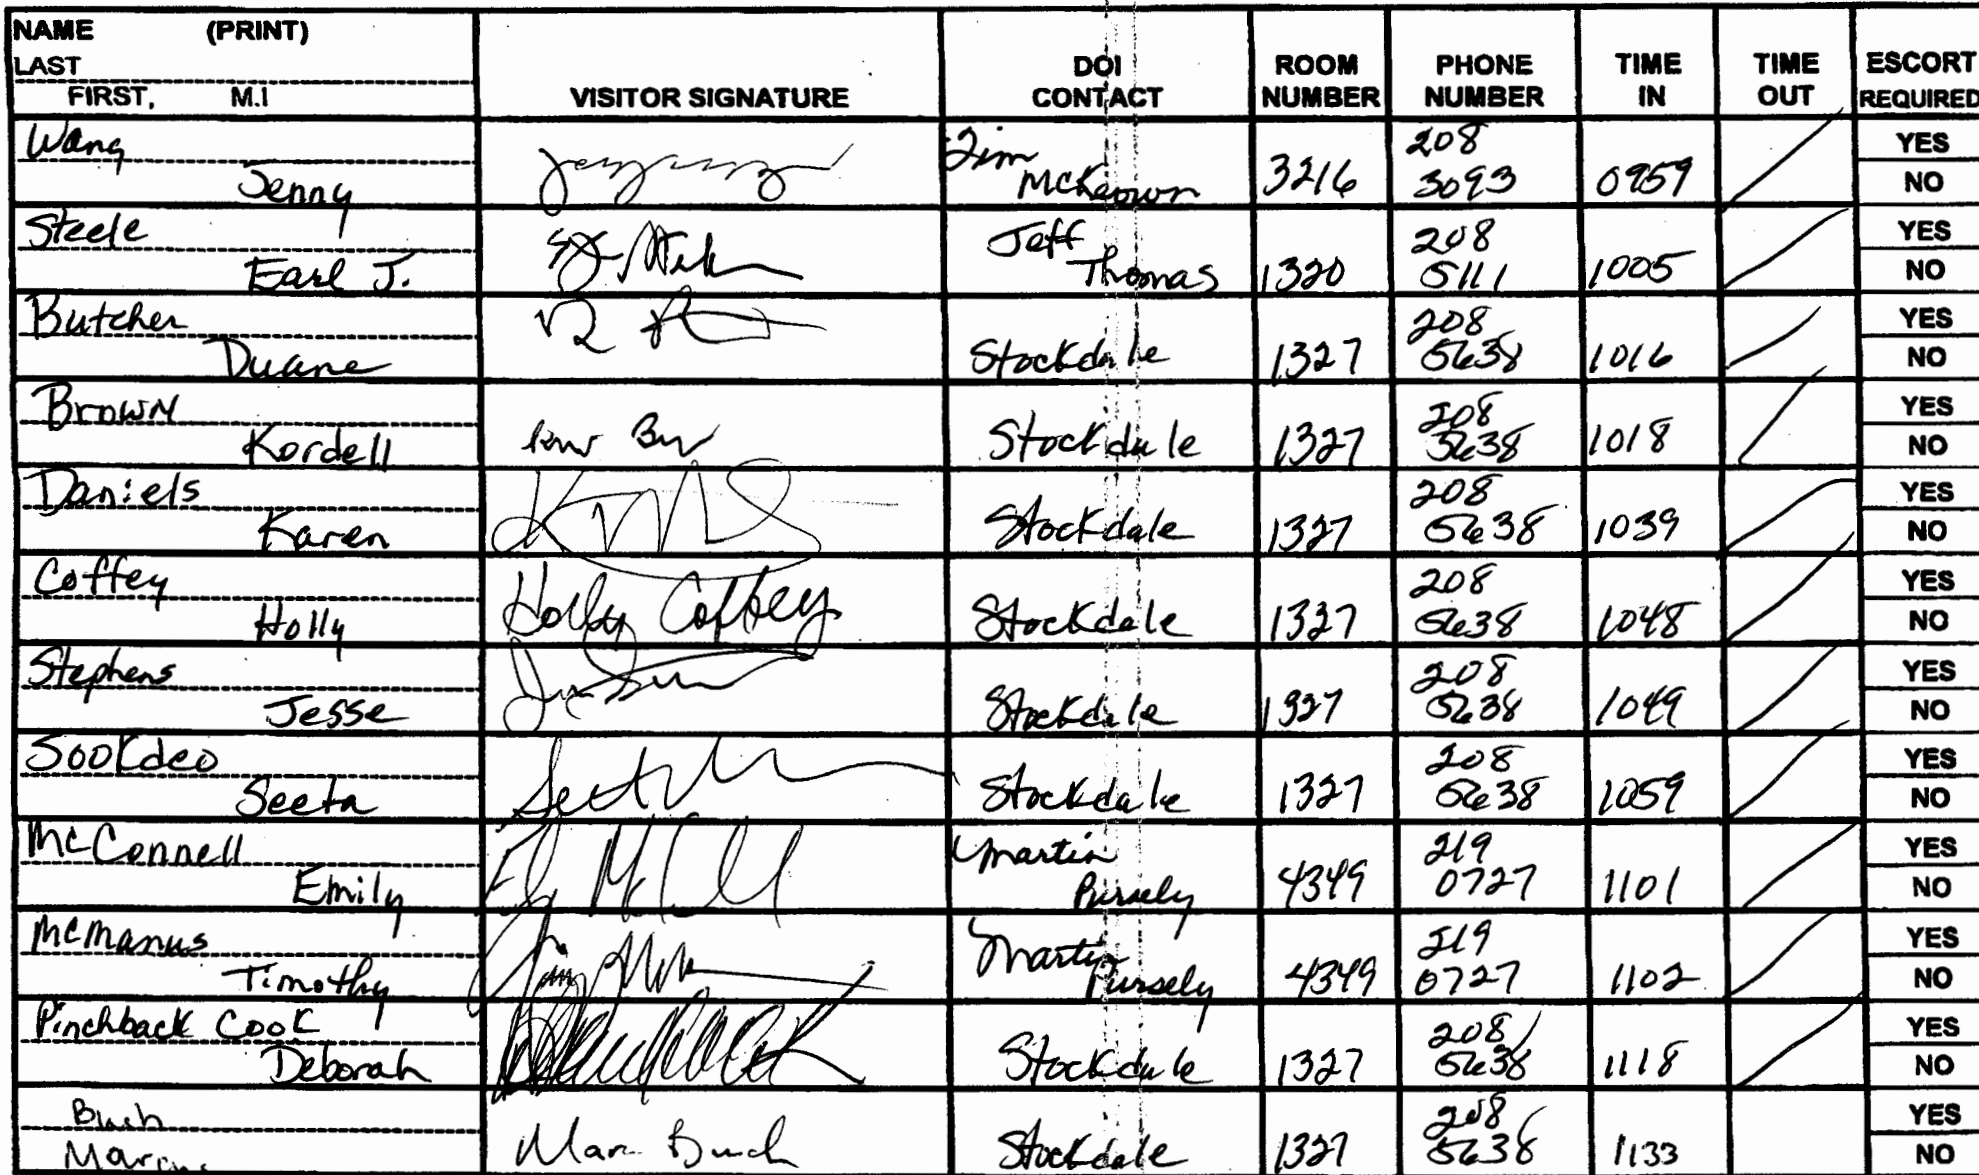 NAME (PRINT)
LAST
FIRST, M.I
VISITOR SIGNATURE
DOI CONTACT
ROOM NUMBER
PHONE NUMBER
TIME IN
TIME OUT
ESCORT REQUIRED
Wang Jenny Jim McKeown 3216 208 3093 0959 YES NO
Steele Earl J. Jeff Thomas 1320 208 5111 1005 YES NO
Butcher Duane Stockdale 1327 208 5638 1016 YES NO
Brown Kordell Stockdale 1327 208 5638 1018 YES NO
Daniels Karen Stockdale 1327 208 5638 1039 YES NO
Coffey Holly Holly Coffey Stockdale 1327 208 5638 1048 YES NO
Stephens Jesse Stockdale 1327 208 5638 1049 YES NO
Sookdeo Seeta Stockdale 1327 208 5638 1059 YES NO
McConnell Emily Martin Pursely 4349 219 0727 1101 YES NO
McManus Timothy Martin Pursely 4349 219 0727 1102 YES NO
Pinchback Cook Deborah Stockdale 1327 208 5638 1118 YES NO
Stockdale 1327 208 5638 1133 YES NO